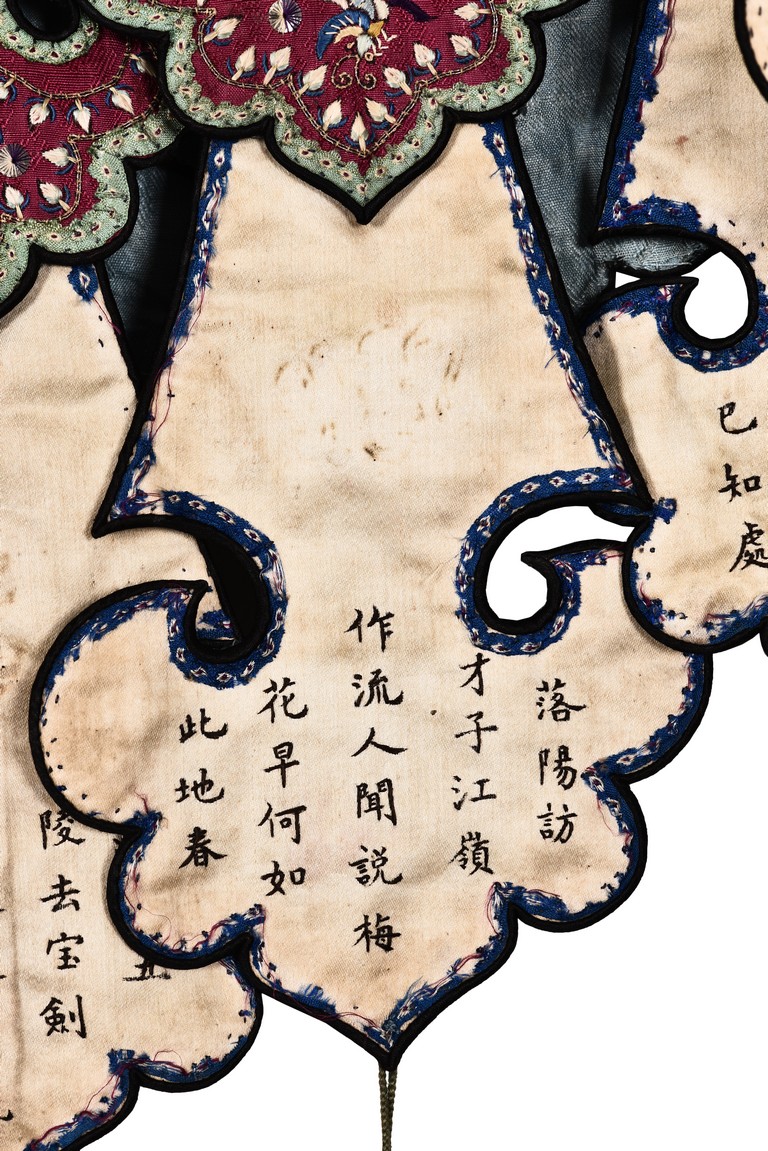 已知處
落陽訪
才子江嶺
作流人聞説梅
花早何如
此地春
陵去宝劍